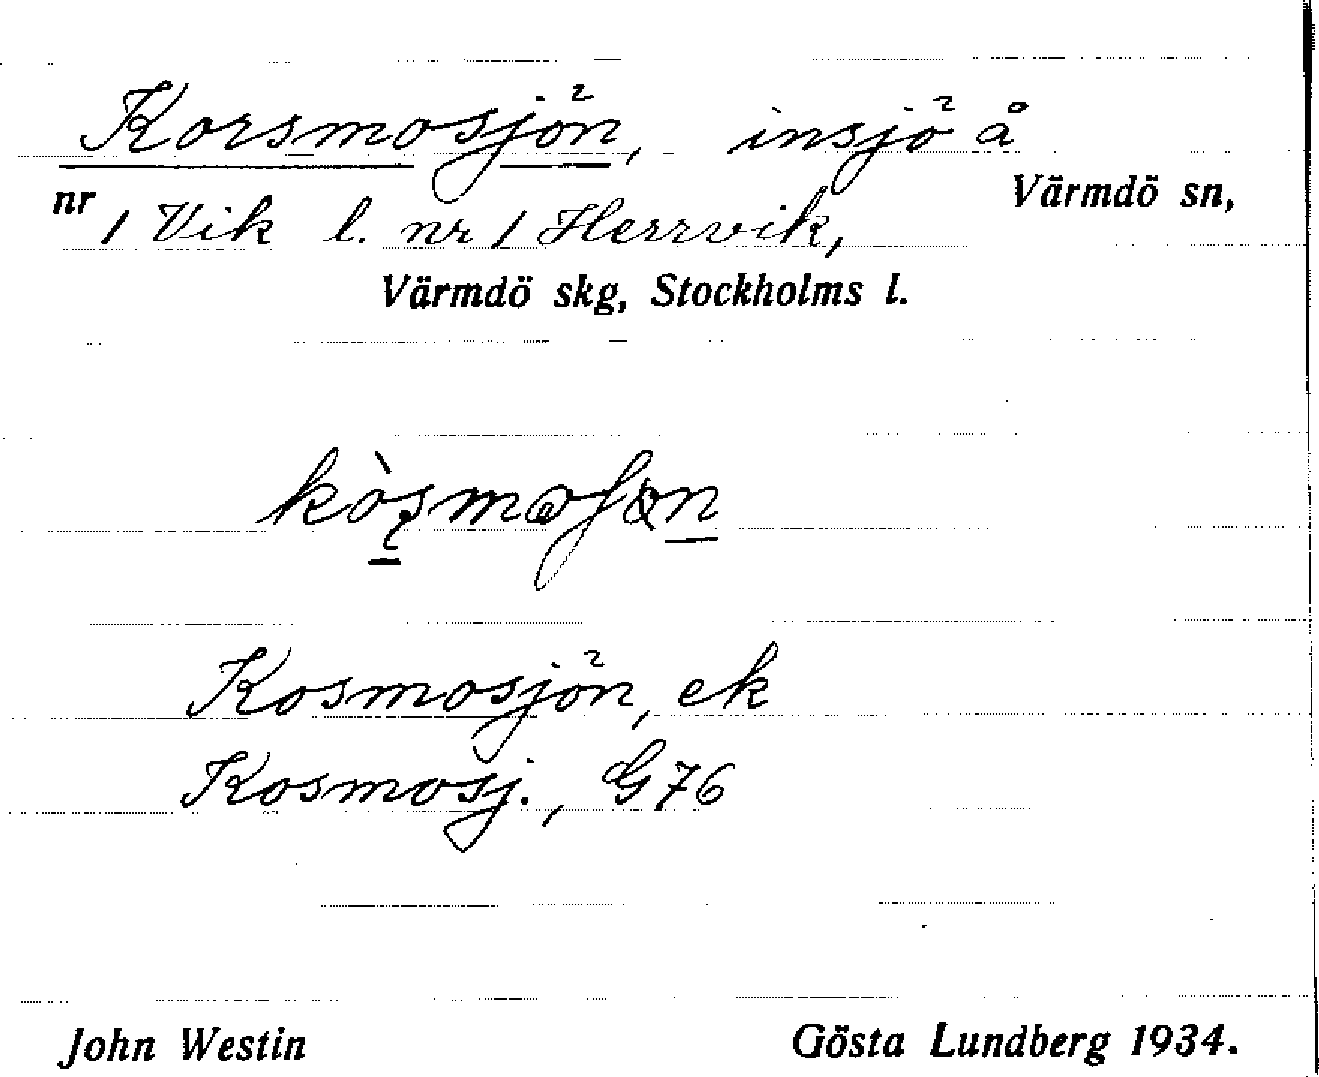 Korsmosjön, insjö å
Värmdö sn,
nr 1 Vik l. nr 1 Herrvik,
Värmdö skg, Stockholms l.
Kosmosjön, ek
Kosmosj., G76
John Westin Gösta Lundberg 1934.